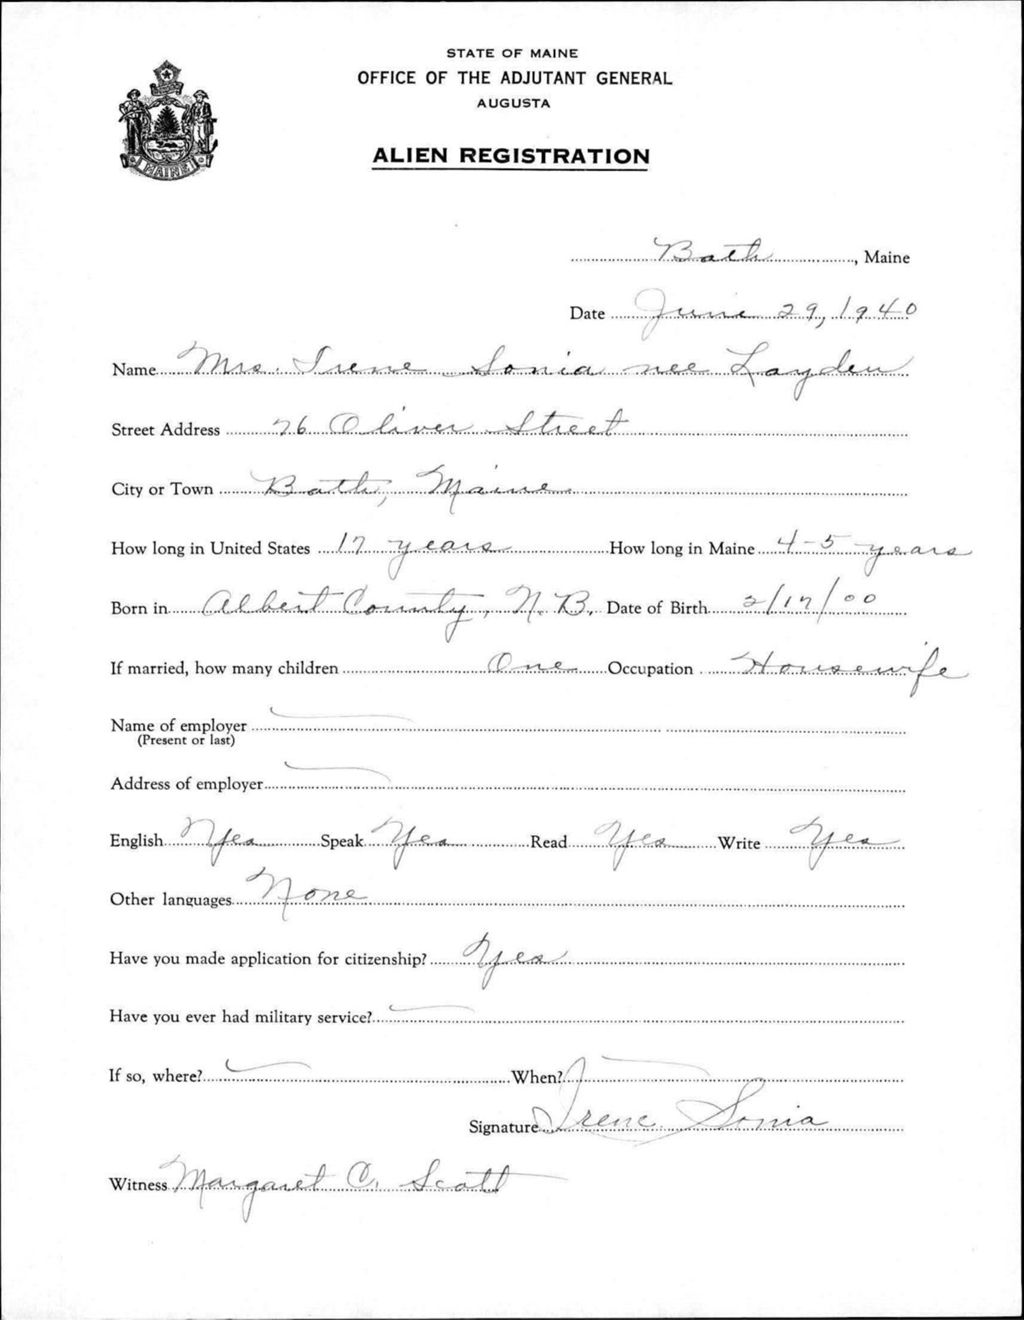 STATE OF MAINE
OFFICE OF THE ADJUTANT GENERAL
AUGUSTA
ALIEN REGISTRATION
MAINE
Bath, Maine
Date June 29, 1940
Name Mrs. Irene Sonia nee Layden
Street Address 76 Oliver Street
City or Town Bath, Maine
How long in United States 17 years How long in Maine 4-5 years
Born in Albert County, N.B. Date of Birth 2/17/00
If married, how many children One Occupation Housewife
Name of employer
(Present or last)
Address of employer
English Yes Speak Yes Read Yes Write Yes
Other languages None
Have you made application for citizenship? Yes
Have you ever had military service?
If so, where? When?
Signature Irene Sonia
Witness Margaret C. Scott